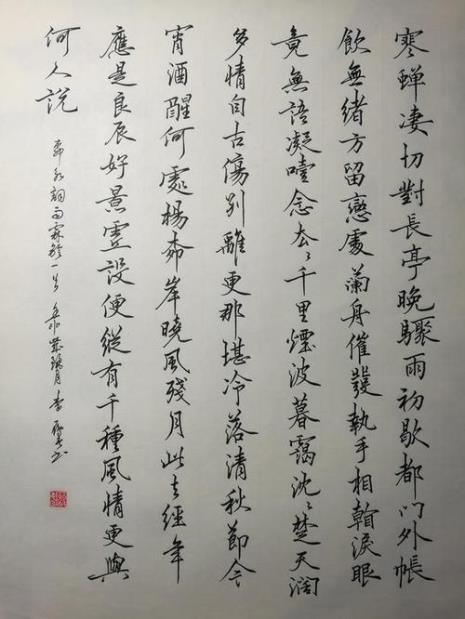 寒蟬凄切對長亭晚驟雨初歇都門外帳
飲無緒方留戀處蘭舟催發執手相看淚眼
竟無語凝噎念去々千里煙波暮靄沈々楚天闊
多情自古傷別離更那堪冷落清秋節今
宵酒醒何處楊柳岸曉風殘月此去經年
應是良辰好景虛設便縱有千種風情更與
何人說
柳永詞雨霖鈴一首 月 李 書